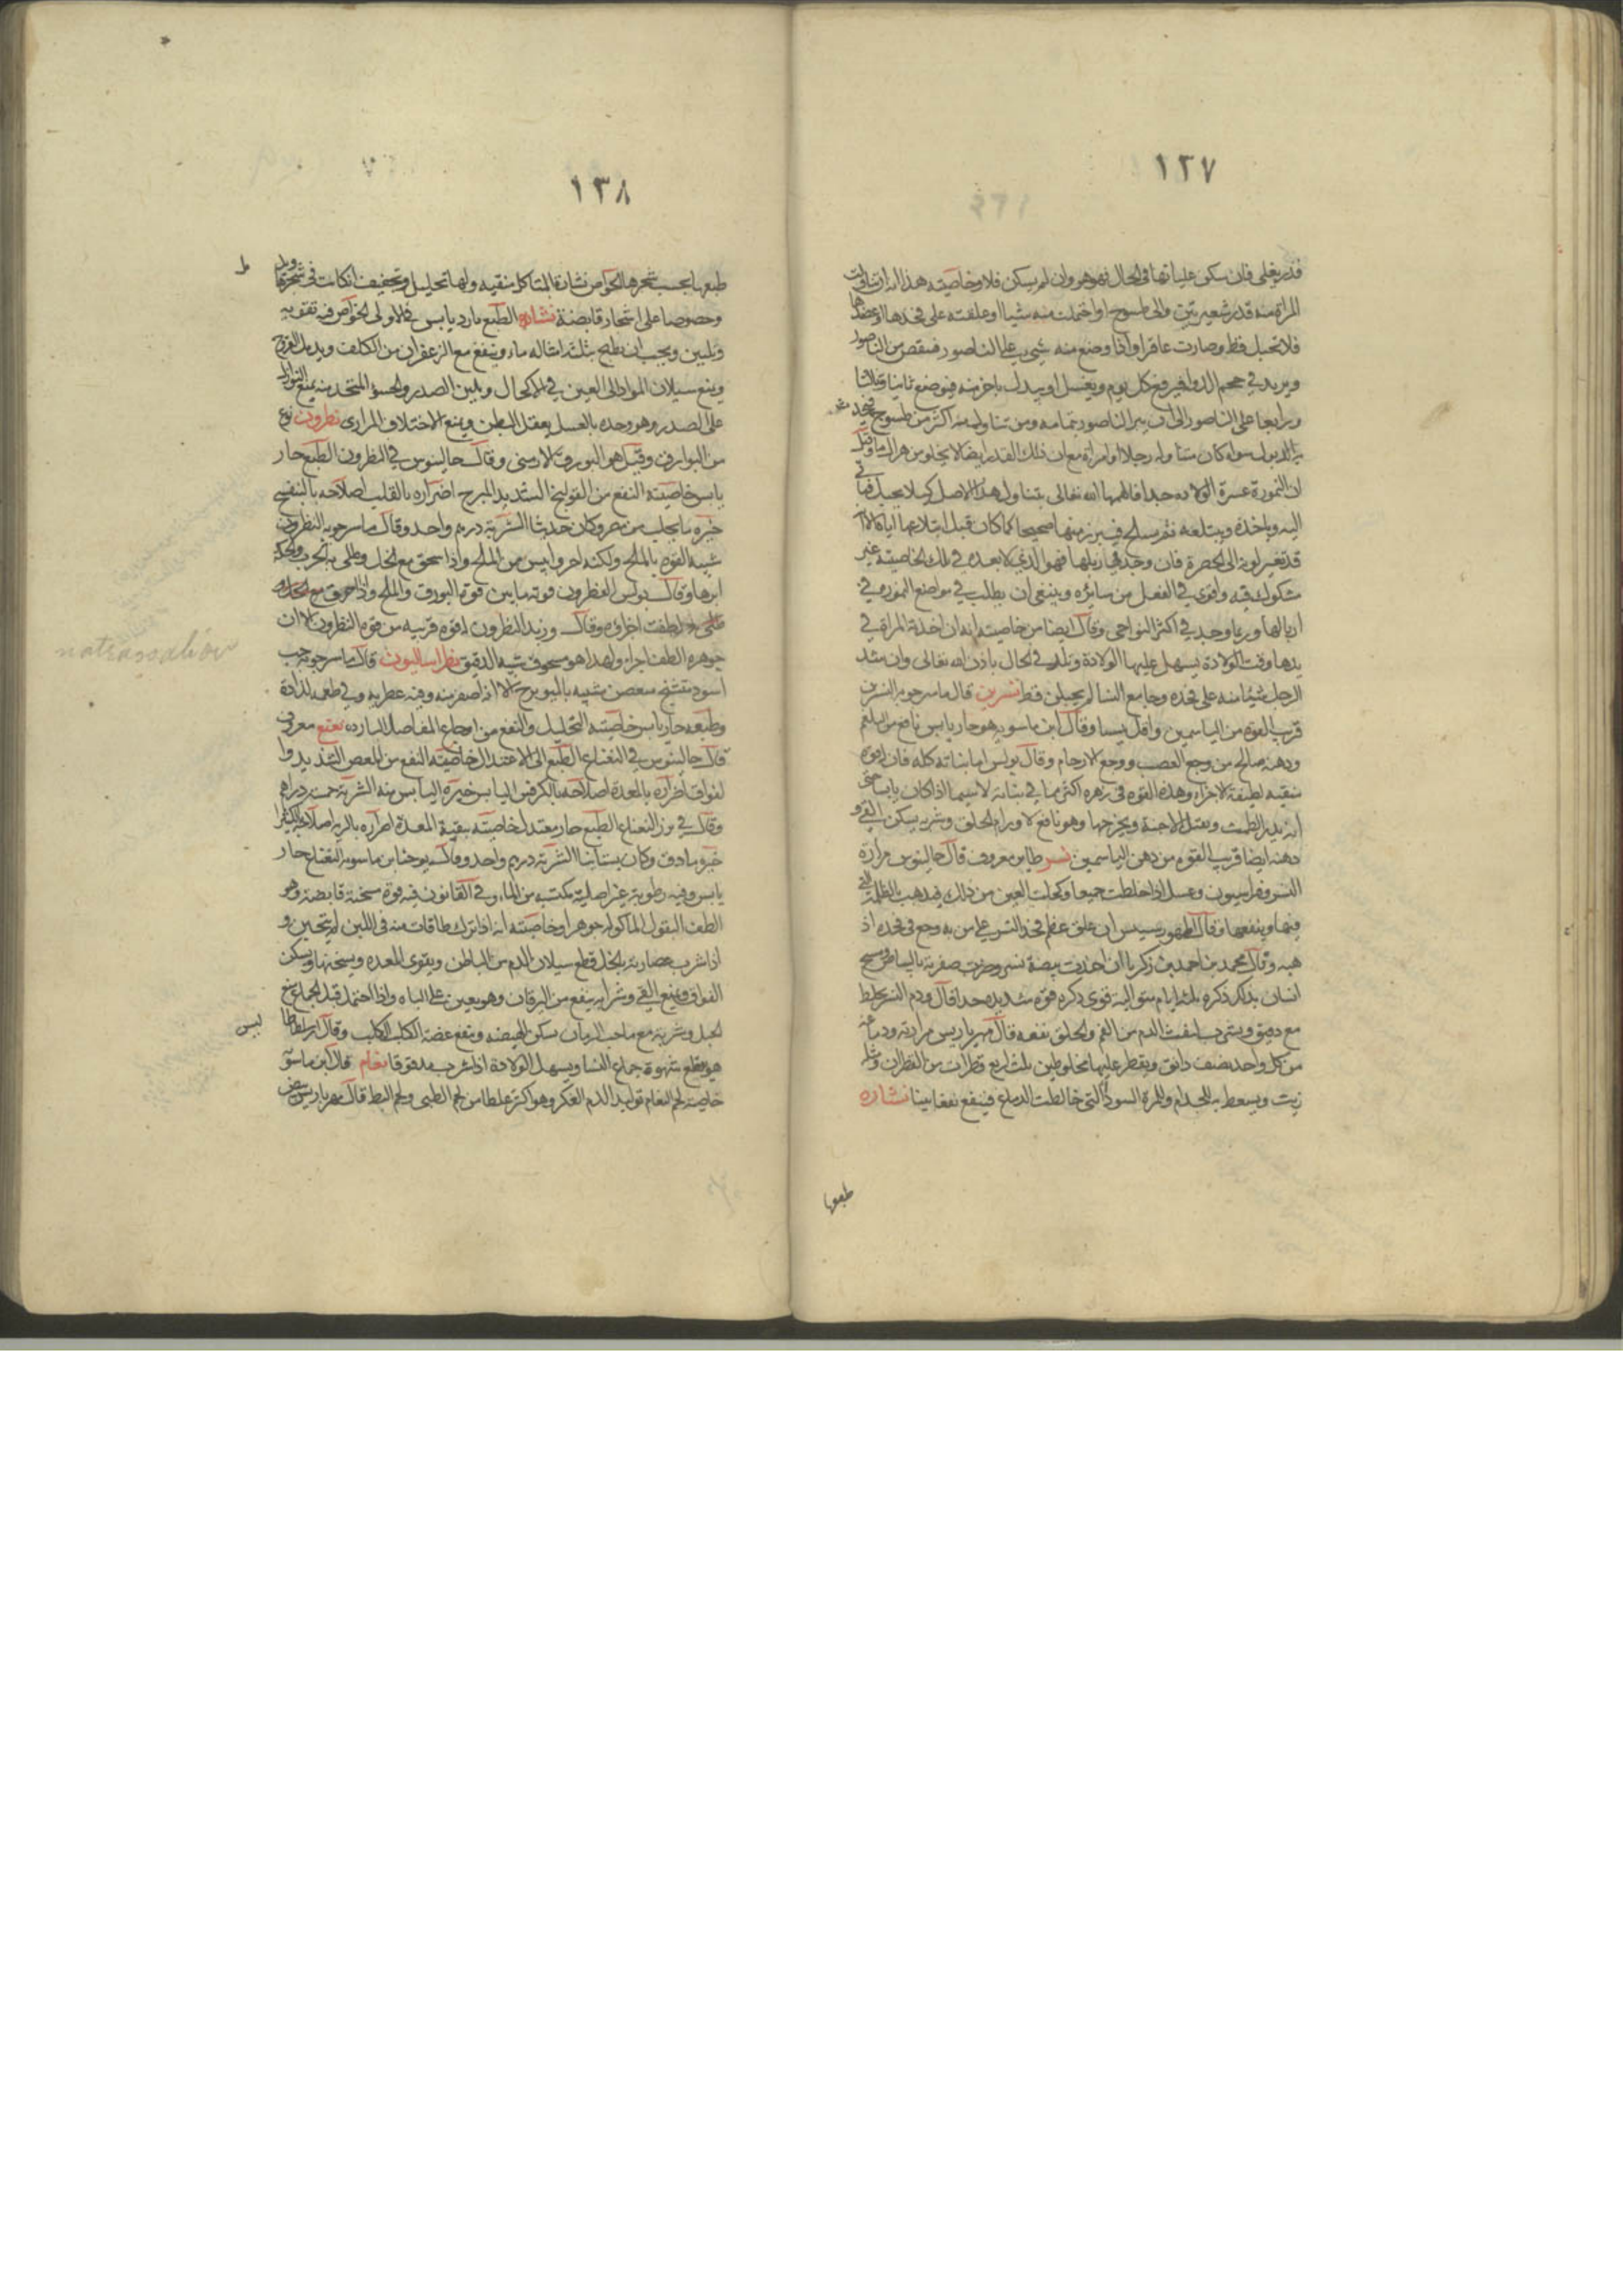 ١٣٧
قدر يغلى فان سكن غليانها فى الحال فهو هو وان لم يسكن فلا وخاصيته هذا انه ان تناولت
المراة منه قدر شعيرتين والى طسوج او احتملت منه شيا او علقته على فخدها او عضدها
فلا تحبل قط وصارت عاقرا واذا وضع منه شى على الناصور فنقص من الناصور
ويزيد فى حجم الدوا فيرفع كل يوم ويغسل او يبدل باخر منه فيوضع ثانيا وثالثا
ورابعا على الناصور الى ان يبرا الناصور بتمامه ومن تناول منه اكثر من طسوج
بالبول سوا كان متناوله رجلا او امراة مع ان ذلك القدر ايضا لا يخلو من هزال ما وقيل
ان النمورة عسرة الولاده جدا فالهمها الله تعالى بتناول هذا الاصل كيلا يحبل فتاتى
اليه وياخذه ويبتلعه ثم يسلح فيبرز منها صحيحا كما كان قبل ابتلاعها اياه الا انه
قد تغير لونه الى الخضرة فان وجد فى زبلها فهو الذى لا بعده فى تلك الخاصيته غير
مشكوك فيه واقوى فى الفعل من سايره وينبغى ان يطلب فى مواضع النمورة فى
ازبالها وربما وجد فى اكثر النواحى وقال ايضا من خاصيته انه ان اخذته المراة فى
يدها وقت الولادة يسهل عليها الولادة وتلد فى الحال باذن الله تعالى وان شد
الرجل شيئا منه على فخده وجامع النسا لم يحبلن قط نسرين قال ماسرجويه النسرين
قريب القوة من الياسمين واقل يبسا وقال ابن ماسويه هو حار يابس نافع من البلغم
ودهنه صالح من وجع العصب ووجع الارحام وقال بولس اما نباته كله فان له قوة
منقيه لطيفة الاجزاء وهذه القوه فى زهره اكثر مما فى نباته لا سيما اذا كان يابسا حتى
انه يدر الطمث ويقتل الاجنة ويخرجها وهو نافع لاورام الحلق وشربه يسكن القى و
دهنه ايضا قريب القوه من دهن الياسمين نسر طاير معروف قال جالينوس مرارة
النسر وفراسيون وعسل اذا خلطت جميعا وكحلت العين من ذلك يذهب بالظلمة التى
فيها وينفعها وقال طهورسيس ان علق عظم فخذ النسر على من به وجع فى فخده اذ
هبه وقال محمد بن احمد بن زكريا ان اخذت بيضة نسر وضربت صفرته بالبياض ومسح
انسان بذلك ذكره ثلثة ايام متوالية قوى ذكره قوة شديده جدا قال ودم النسر يخلط
مع دقيق ويشرب لنفث الدم من الفم والحلق نفعه قال مهرياريس مرارته ودماغه
من كل واحد نصف دانق ويقطر عليها مخلوطين ثلث اربع قطرات من القطران ومثله
زيت ويسعط به للجذام وللمرة السوداء التى خالطت الدماغ فينفع نفعا بينا نشاره
طبعها
١٣٨
طبعها بحسب شجرها الخواص نشارة المتاكل منقيه ولها تحليل وتجفيف ان كانت فى شجرتها
وخصوصا على اشجار قابضة نشاء الطبع بارد يابس فى الاولى الخواص فيه تقويه
وتليين ويجب ان يطبخ بثلثة امثاله ماء وينفع مع الزعفران من الكلف ويدمل القروح
ويمنع سيلان المواد الى العين فى الاكحال ويلين الصدر والحسو المتخذ منه يمنع النوازل
على الصدر وهو وحده بالعسل يعقل البطن ويمنع الاختلاف المرارى نطرون نوع
من البوارق وقيل هو البورق الارمنى وقال جالينوس فى النطرون الطبع حار
يابس خاصيته النفع من القولنج الشديد المبرح اضراره بالقلب اصلاحه بالبنفسج
خيره ما يجلب من مصر وكان حديثا الشربة درهم واحد وقال ماسرجويه النطرون
شبيه القوه بالملح ولكنه احر وايبس من الملح واذا سحق مع الخل وطلى به الجرب والحكة
ابرها وقال بولس النطرون قوته ما بين قوة البورق والملح واذا احرق مع الخل و
طلى لطفت اجزاوه وقال وزبد النطرون له قوة قريبه من قوة النطرون الا ان
جوهره الطف اجزاء ولهذا هو مسحوق شبيه الدقيق نطراساليون قال ماسرجويه حب
اسود متشنج معصن شبيه بالبوبرج الا انه اصغر منه وفيه عطريه وفى طعمه لذاذة
وطبعه حار يابس خاصيته التحليل والنفع من اوجاع المفاصل البارده نعنع معروف
قال جالينوس فى النعناع الطبع الى الاعتدال خاصيته النفع من المعص الشديد وا
لفواق اضراره بالمعدة اصلاحه بالكرفس اليابس خيره اليابس منه الشربة خمسة دراهم
وقال فى بزر النعناع الطبع حار معتدل خاصيته تنقية المعدة اضراره بالرية اصلاحه بالكثيرا
خيره ما دق وكان بستانيا الشربة درهم واحد وقال يوحنا بن ماسويه النعناع حار
يابس وفيه رطوبة غير اصلية مكتسبة من الماء وفى القانون فيه قوة مسخنة قابضة وهو
الطف البقول الماكوله جوهرا وخاصيته انه اذا ترك طاقات منه فى اللبن لم يتجبن و
اذا شرب عصارته بالخل قطع سيلان الدم من الباطن ويقوى المعده ويسخنها ويسكن
الفواق ويمنع القى وشرابه ينفع من اليرقان وهو يعين على الباه واذا احتمل قبل الجماع منع
الحبل وشربه مع ماء حب الرمان يسكن الهيضه وينفع عضة الكلب الكلب وقال
هو يقطع شهوة جماع النسا ويسهل الولادة اذا شرب مدقوقا نعام قال ابن ماسويه
خاصية لحم النعام توليد الدم العكر وهو اكثر غلظا من لحم الظبى ولحم البط قال مهرياريس
natrassalion